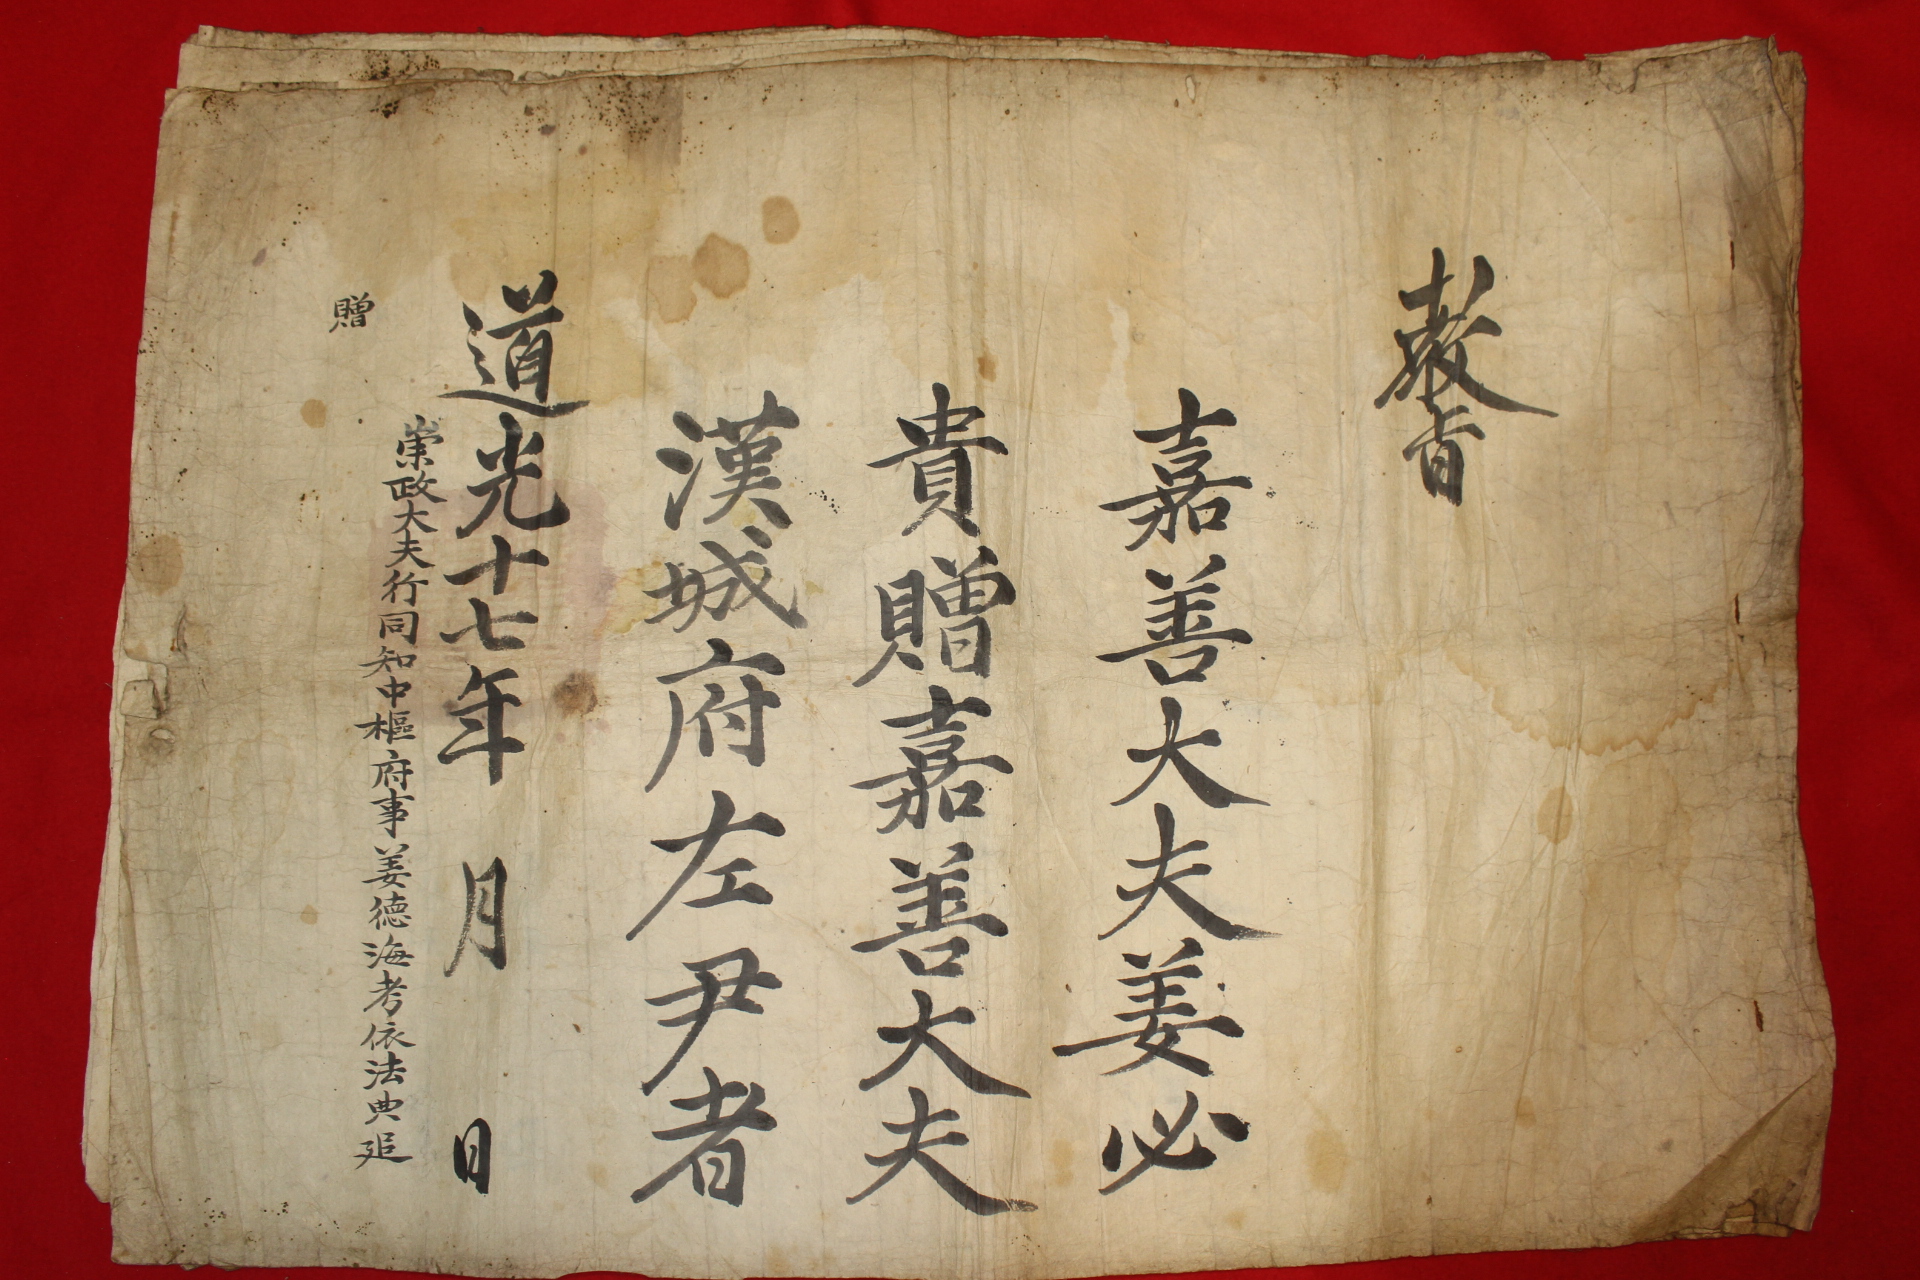 敎旨
嘉善大夫姜必
貴贈嘉善大夫
漢城府左尹者
道光十七年 月 日
崇政大夫行同知中樞府事姜德海考依法典追
贈